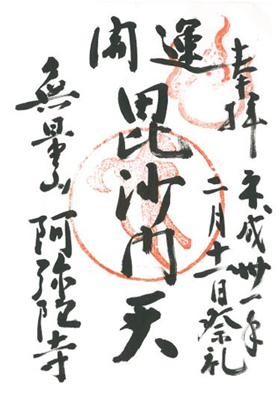 奉拝
平成卅一年
二月十一日祭礼
開運
毘沙門天
無量山
阿弥陀寺